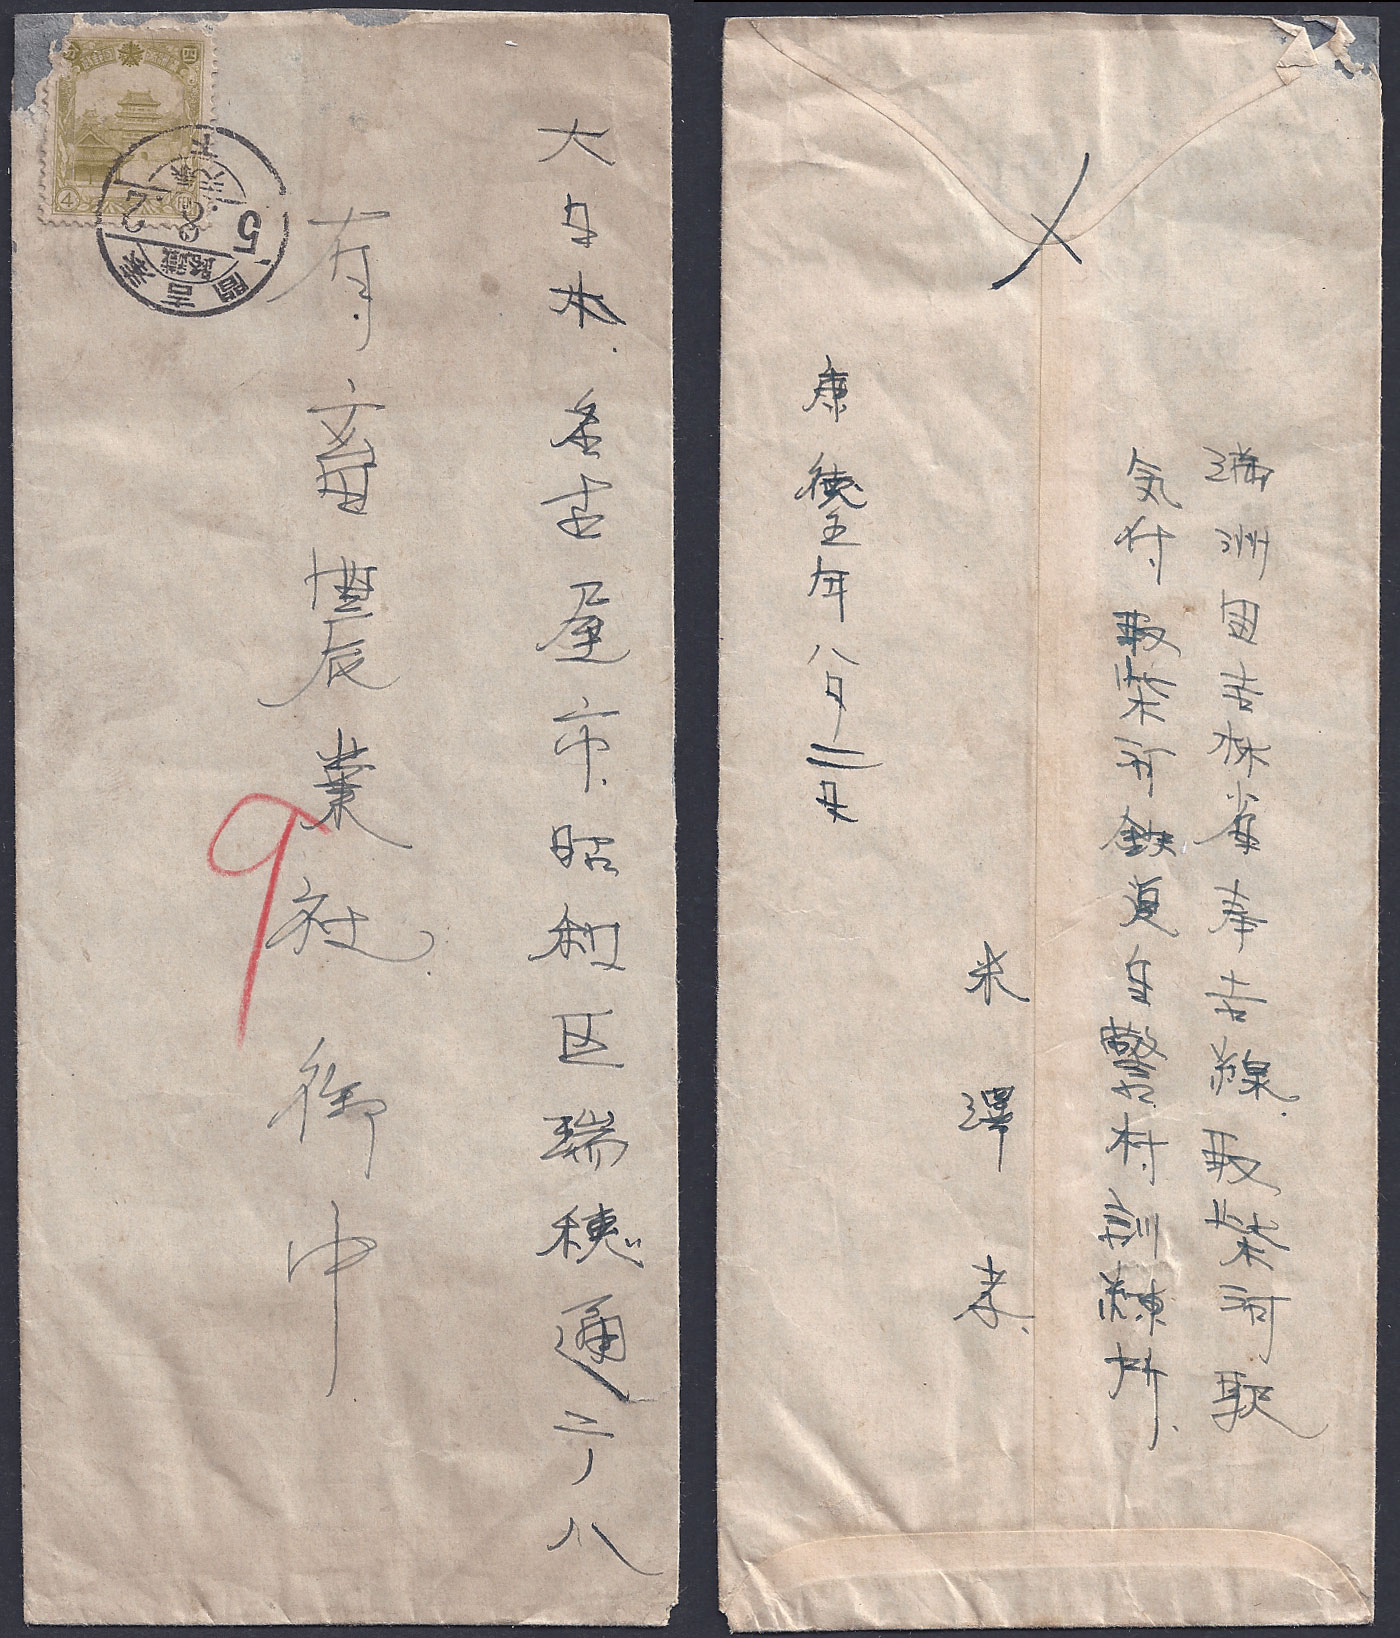 大日本名古屋市昭和区瑞穂通二ノ八
有畜農業社御中
9
4
奉吉間
鉄路
5.8.2
満洲国吉林省奉吉線取柴河駅
気付取柴河鉄道自警村訓練所
米澤孝
康徳五年八月二日